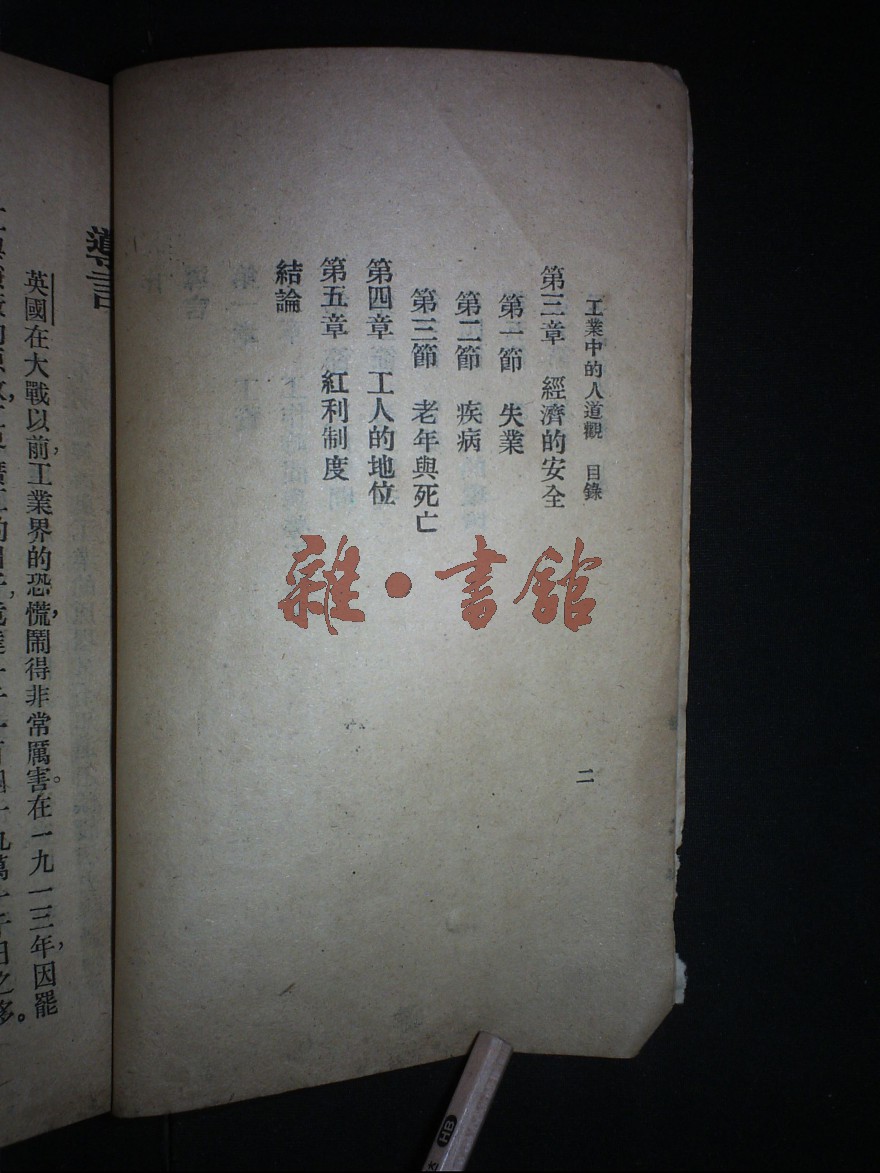 工業中的人道觀 目錄
第三章 經濟的安全
第一節 失業
第二節 疾病
第三節 老年與死亡
第四章 工人的地位
第五章 紅利制度
結論
二
雜·書館
導言
英國在大戰以前，工業界的恐慌，鬧得非常厲害。在一九一三年，因罷
HB